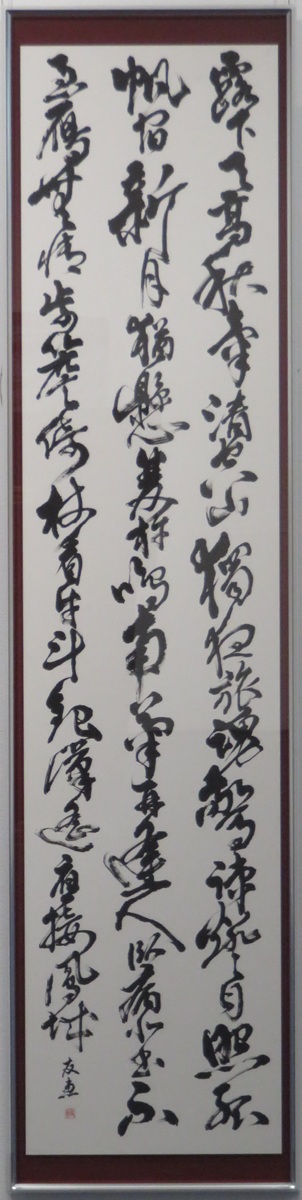 露下天高秋氣清空山獨夜旅魂驚疎燈自照孤
帆宿新月猶懸雙杵鳴南菊再逢人臥病北書不
至雁無情步簷倚杖看牛斗銀漢遙應接鳳城
友恵